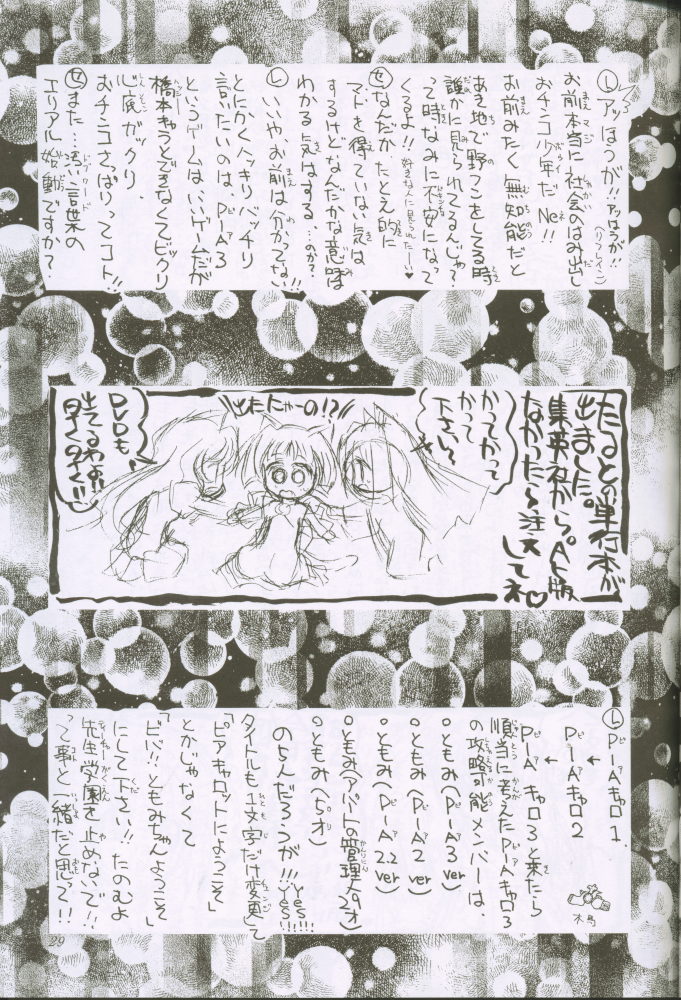 Ⓛアッはうが!!アッはうが!!(リフレイン)
お前本当に社会のはみ出し
おチンコ少年だNe!!
お前みたく無知能だと
あき地で野ぐそしてる時
誰かに見られてるんじゃ?
って時なみに不安になって
くるよ!!好きな人に見られたー♥
Ⓩなんだか、たとえ的に
マトを得ていない気は
するけどなんだかな意味は
わかる気はする…のか?
Ⓛいいや、お前は分かってない!!
とにかくハッキリバッチリ
言いたいのは、Pia3
というゲームはいいゲームだが
橋本キャラどきなくてビックリ
心底ガックリ、
おチンコさっぱりってコト!!
Ⓩまた…汚い言葉の
エリアル始動ですか?
たるとの単行本が
出ました。
集英社から。A5版
なかったら注文
してネ♡
かってかって
かって
下さい〜
出たにゃーの!?
DVDも
出てるわよ!!
Ⓛ PiAキャロ1.
↓
PiAキャロ2
↓
PiAキャロ3と来たら
順当に考えたPiAキャロ3
の攻略可能メンバーは、
○ともみ(PiA3ver)
○ともみ(PiA2ver)
○ともみ(PiA2.2ver)
○ともみ(アパートの管理人29才)
○ともみ(5才)
のちんだろうが!!!yes!!yes!!!
タイトルも1文字だけ変更て
「ピアキャロットにようこそ」
とかじゃなくて
「ビバ!!ともみちゃんようこそ」
にして下さい!!たのむよ
先生、学園を止めないで!!
って事と一緒だと思って!!
29